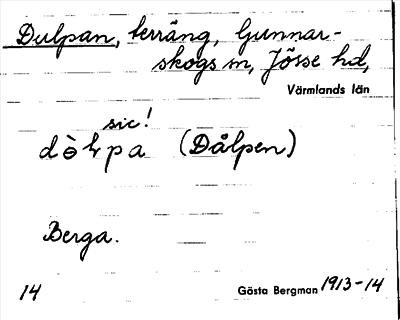 Dulpan, terräng, Gunnar-
skogs sn, Jösse hd,
Värmlands län
sic!
dòɫpa (Dålpen)
Berga.
14 Gösta Bergman 1913-14